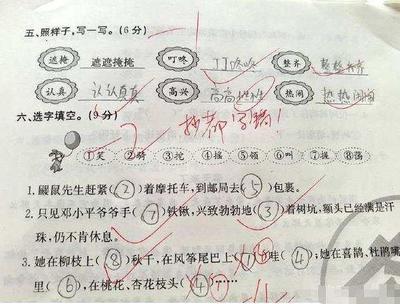 五、照样子,写一写。(6分)
遮掩 遮遮掩掩 叮咚 丁丁咚咚 整齐 整整齐齐
认真 认认真真 高兴 高高兴兴 热闹 热热闹闹
六、选字填空。(9分) 抄都
①笑 ②骑 ③挖 ④摇 ⑤领 ⑥叫 ⑦握 ⑧荡
1.鼹鼠先生赶紧(2)着摩托车,到邮局去(5)包裹。
2.只见邓小平爷爷手(7)铁锹,兴致勃勃地(3)着树坑,额头已经满是汗
珠,仍不肯休息。
3.她在柳枝上(8)秋千,在风筝尾巴上( )哇(4);她在喜鹊、杜鹃嘴
里(6),在桃花、杏花枝头(4)……